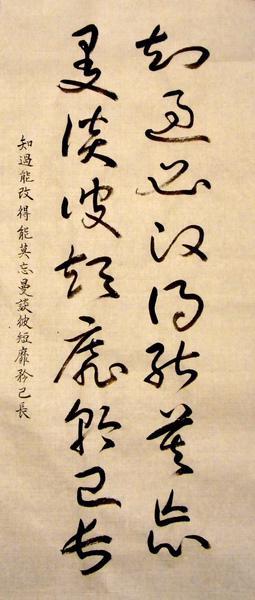 知過必改得能莫忘
曼談彼短靡矜己長
知過能改得能莫忘曼談彼短靡矜己長